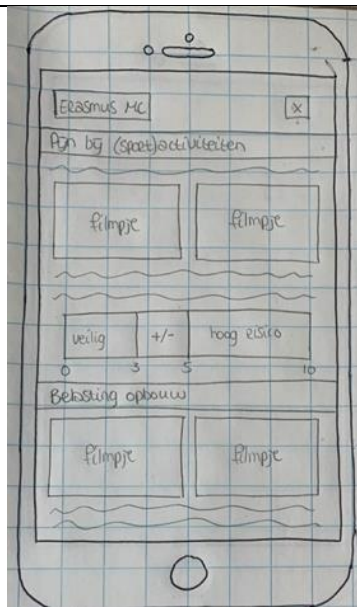 Erasmus MC X
Pijn bij (sport)activiteiten
filmpje filmpje
veilig +/- hoog risico
0 3 5 10
Belasting opbouw
filmpje filmpje